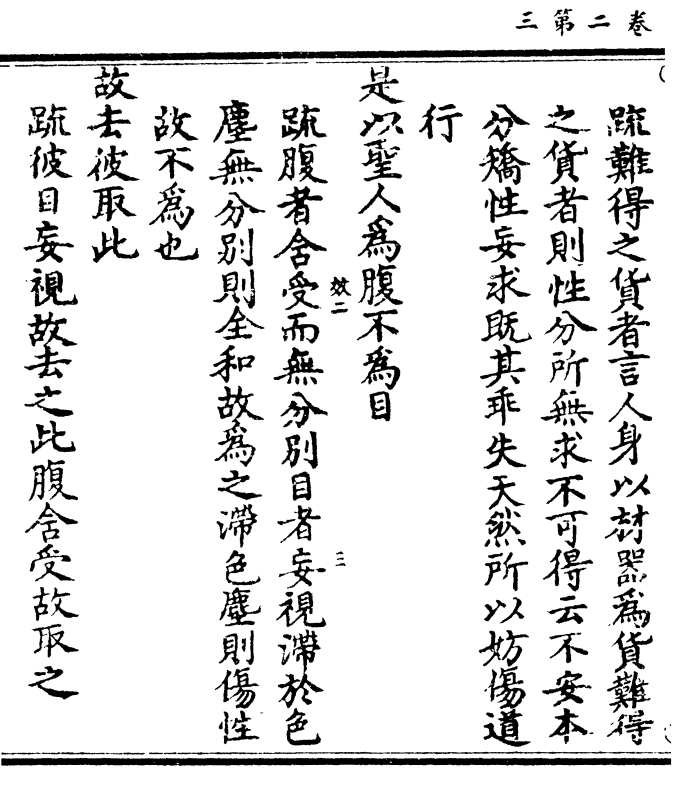 卷二第三
疏難得之貨者言人身以材器為貨難得
之貨者則性分所無求不可得云不安本
分矯性妄求既其乖失天然所以妨傷道
行
是以聖人為腹不為目
效二
三
疏腹者含受而無分別目者妄視滯於色
塵無分別則全和故為之滯色塵則傷性
故不為也
故去彼取此
疏彼目妄視故去之此腹含受故取之